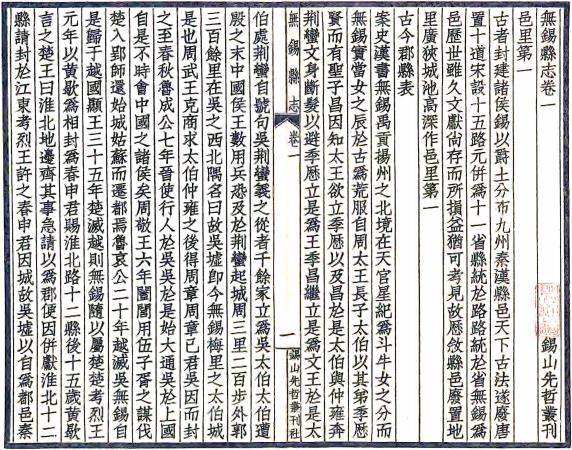 無錫縣志卷一 錫山先哲叢刊
邑里第一
古者封建諸侯錫以爵土分布九州秦漢縣邑天下古法遂廢唐
置十道宋設十五路元併爲十一省縣統於路路統於省無錫爲
邑歷世雖久文獻尚存而所損益猶可考見故歷敘縣邑廢置地
里廣狹城池高深作邑里第一
古今郡縣表
案史漢書無錫禹貢揚州之北境在天官星紀爲斗牛女之分而
無錫實當女之辰於古爲荒服自周太王長子太伯以其弟季歷
賢而有聖子昌因知太王欲立季歷以及昌於是太伯與仲雍奔
荆蠻文身斷髮以避季歷立是爲王季昌繼立是爲文王於是太
無錫縣志 卷一 一 錫山先哲叢刊社
伯處荆蠻自號句吳荆蠻義之從者千餘家立爲吳太伯太伯遭
殷之末中國侯王數用兵恐及於荆蠻起城周三里二百步外郭
三百餘里在吳之西北隅名曰故吳墟卽今無錫梅里之太伯城
是也周武王克商求太伯仲雍之後得周章周章已君吳因而封
之至春秋魯成公七年晉使行人於吳吳於是始大通吳於上國
自是不時會中國之諸侯矣周敬王六年闔閭用伍子胥之謀伐
楚入郢師還始城姑蘇而遷都焉魯哀公二十年越滅吳無錫自
是歸于越國顯王三十五年楚滅越則無錫隨以屬楚楚考烈王
元年以黃歇爲相封爲春申君賜淮北路十二縣後十五歲黃歇
言之楚王曰淮北地邊齊其事急請以爲郡便因併獻淮北十二
縣請封於江東考烈王許之春申君因城故吳墟以自爲都邑秦